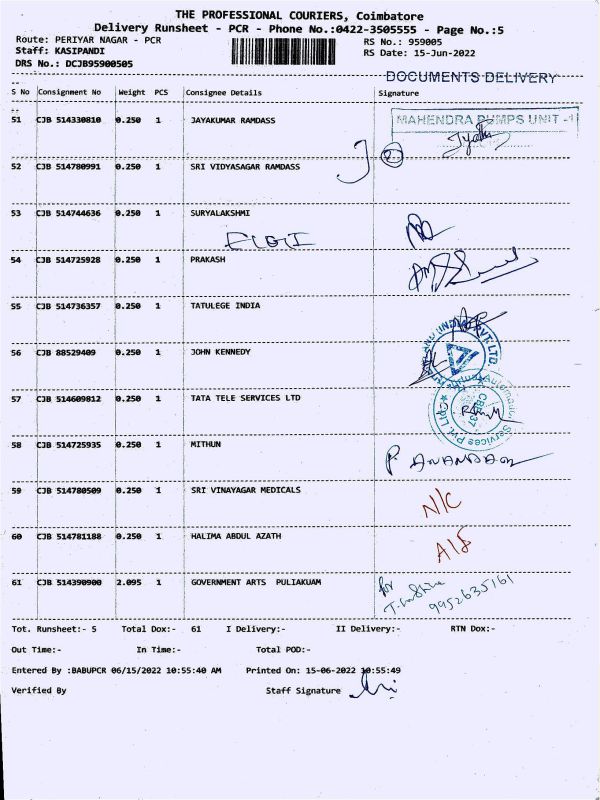 THE PROFESSIONAL COURIERS, Coimbatore
Delivery Runsheet - PCR - Phone No.:0422-3505555 - Page No.:5
Route: PERIYAR NAGAR - PCR RS No.: 959005
Staff: KASIPANDI RS Date: 15-Jun-2022
DRS No.: DCJB95900505
DOCUMENTS DELIVERY
S No Consignment No Weight PCS Consignee Details Signature
51 CJB 514330810 0.250 1 JAYAKUMAR RAMDASS MAHENDRA PUMPS UNIT -1
52 CJB 514780991 0.250 1 SRI VIDYASAGAR RAMDASS
53 CJB 514744636 0.250 1 SURYALAKSHMI
ELGI
54 CJB 514725928 0.250 1 PRAKASH
55 CJB 514736357 0.250 1 TATULEGE INDIA
56 CJB 88529409 0.250 1 JOHN KENNEDY
57 CJB 514609812 0.250 1 TATA TELE SERVICES LTD
58 CJB 514725935 0.250 1 MITHUN
P. ANANDAN
59 CJB 514780509 0.250 1 SRI VINAYAGAR MEDICALS
N/C
60 CJB 514781188 0.250 1 HALIMA ABDUL AZATH
A/S
61 CJB 514390900 2.095 1 GOVERNMENT ARTS PULIAKUAM for
9952635161
Tot. Runsheet:- 5 Total Dox:- 61 I Delivery:- II Delivery:- RTN Dox:-
Out Time:- In Time:- Total POD:-
Entered By :BABUPCR 06/15/2022 10:55:40 AM Printed On: 15-06-2022 10:55:49
Verified By Staff Signature